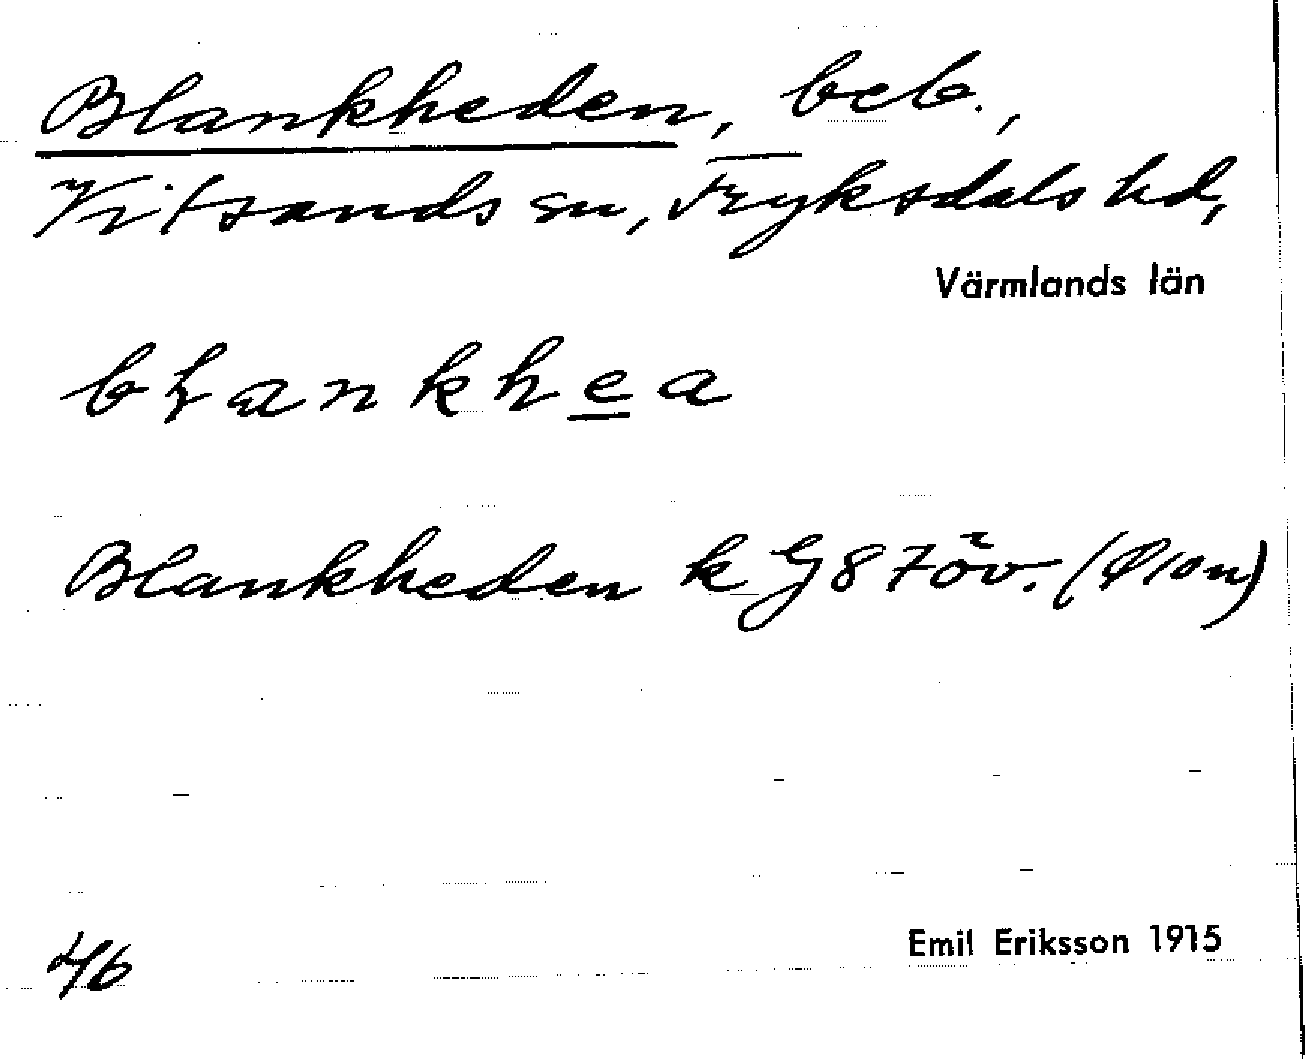 Blankheden, beb.,
Vitsands sn, Fryksdals hd,
Värmlands län
Blankheden k G87öv.
46
Emil Eriksson 1915